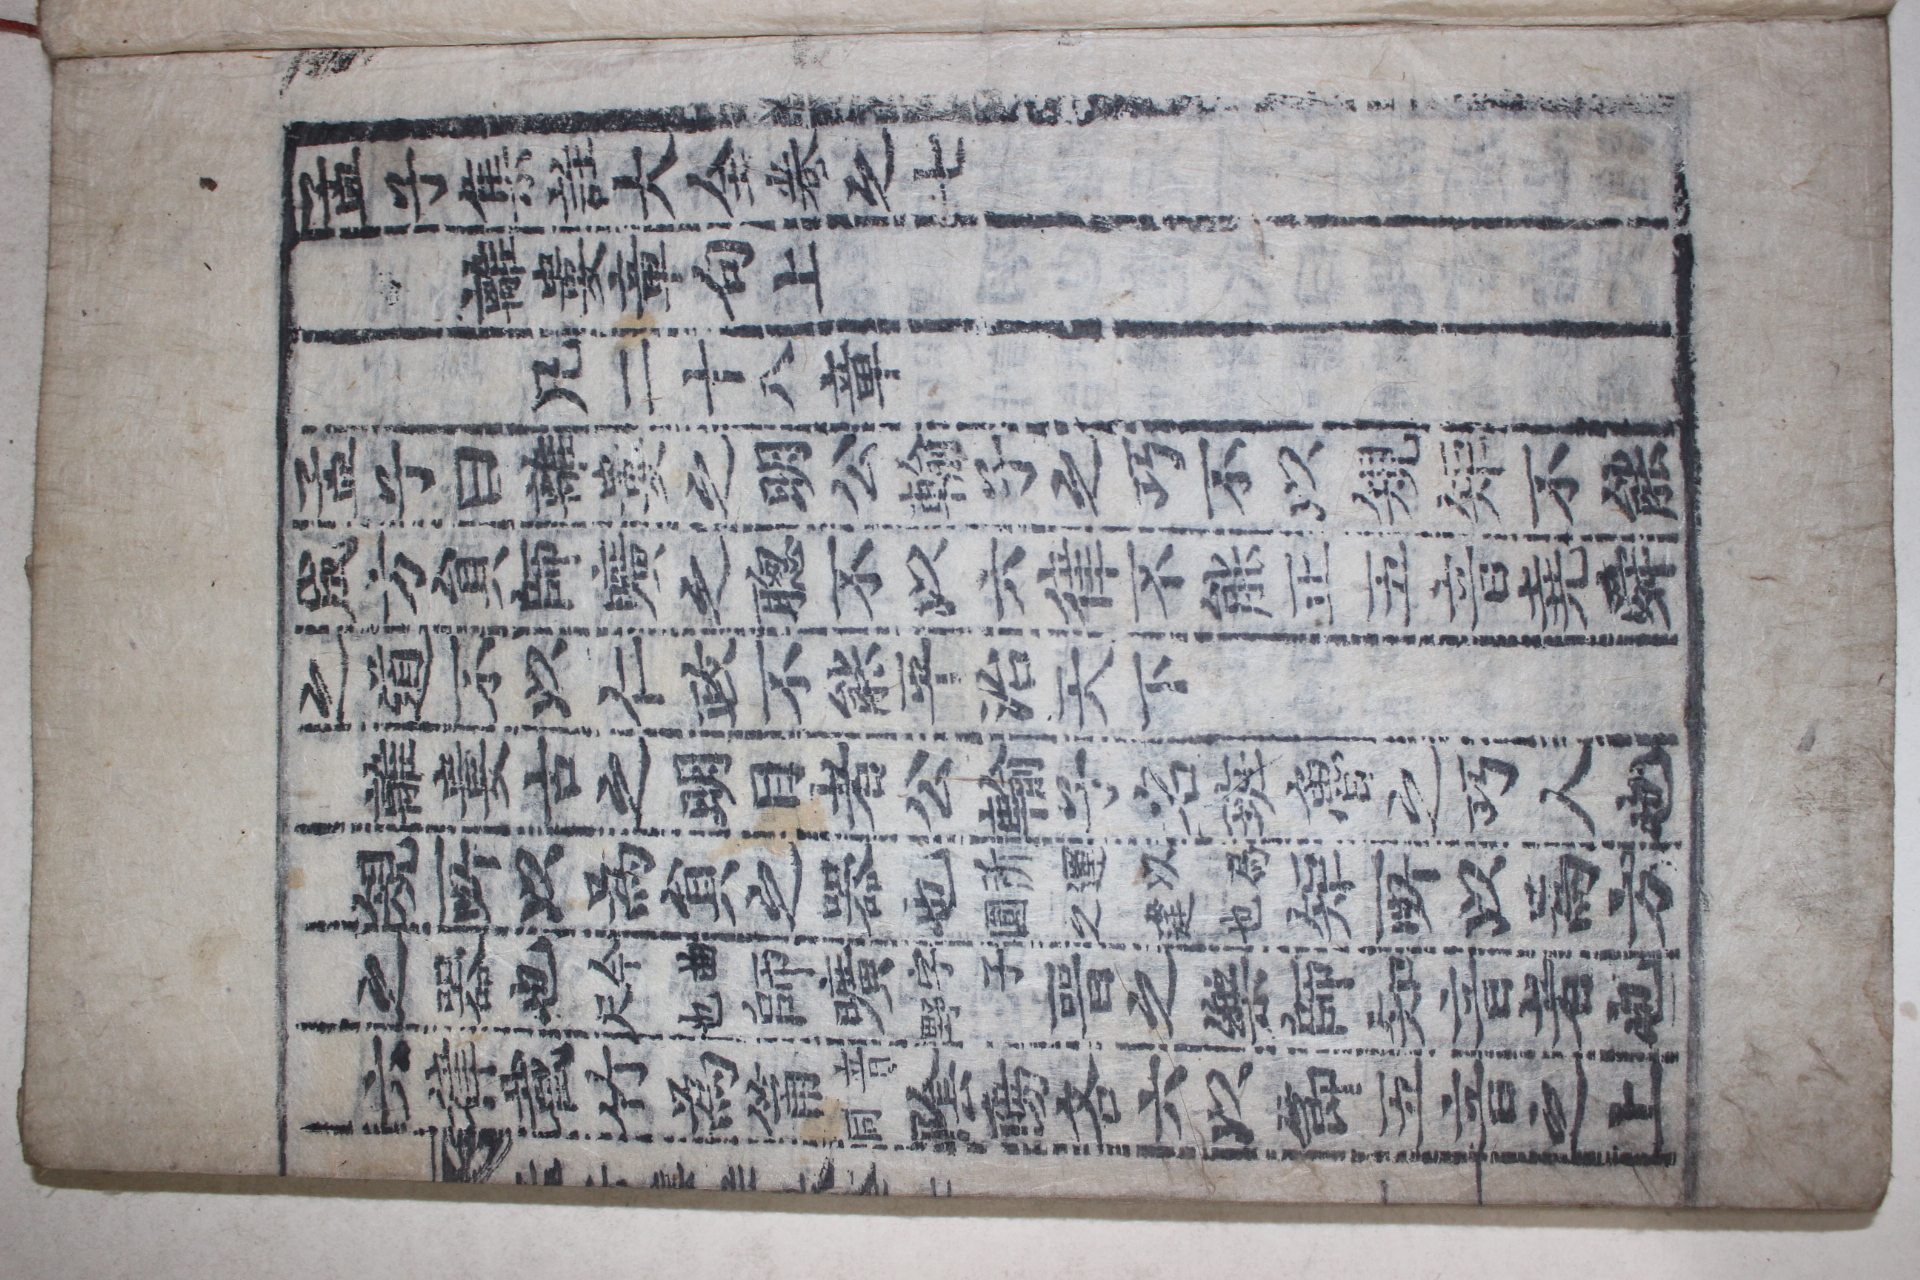 孟子集註大全卷之七
離婁章句上
凡二十八章
孟子曰離婁之明公輸子之巧不以規矩不能
成方員師曠之聰不以六律不能正五音堯舜
之道不以仁政不能平治天下
離婁古之明目者公輸子名班魯之巧人也
規所以爲員之器也所圓之運以違也爲矩所以爲方
之器也今曲尺也師曠字子野晉之樂師知音者也
六律截竹爲筩音同陰陽各六以節五音之上